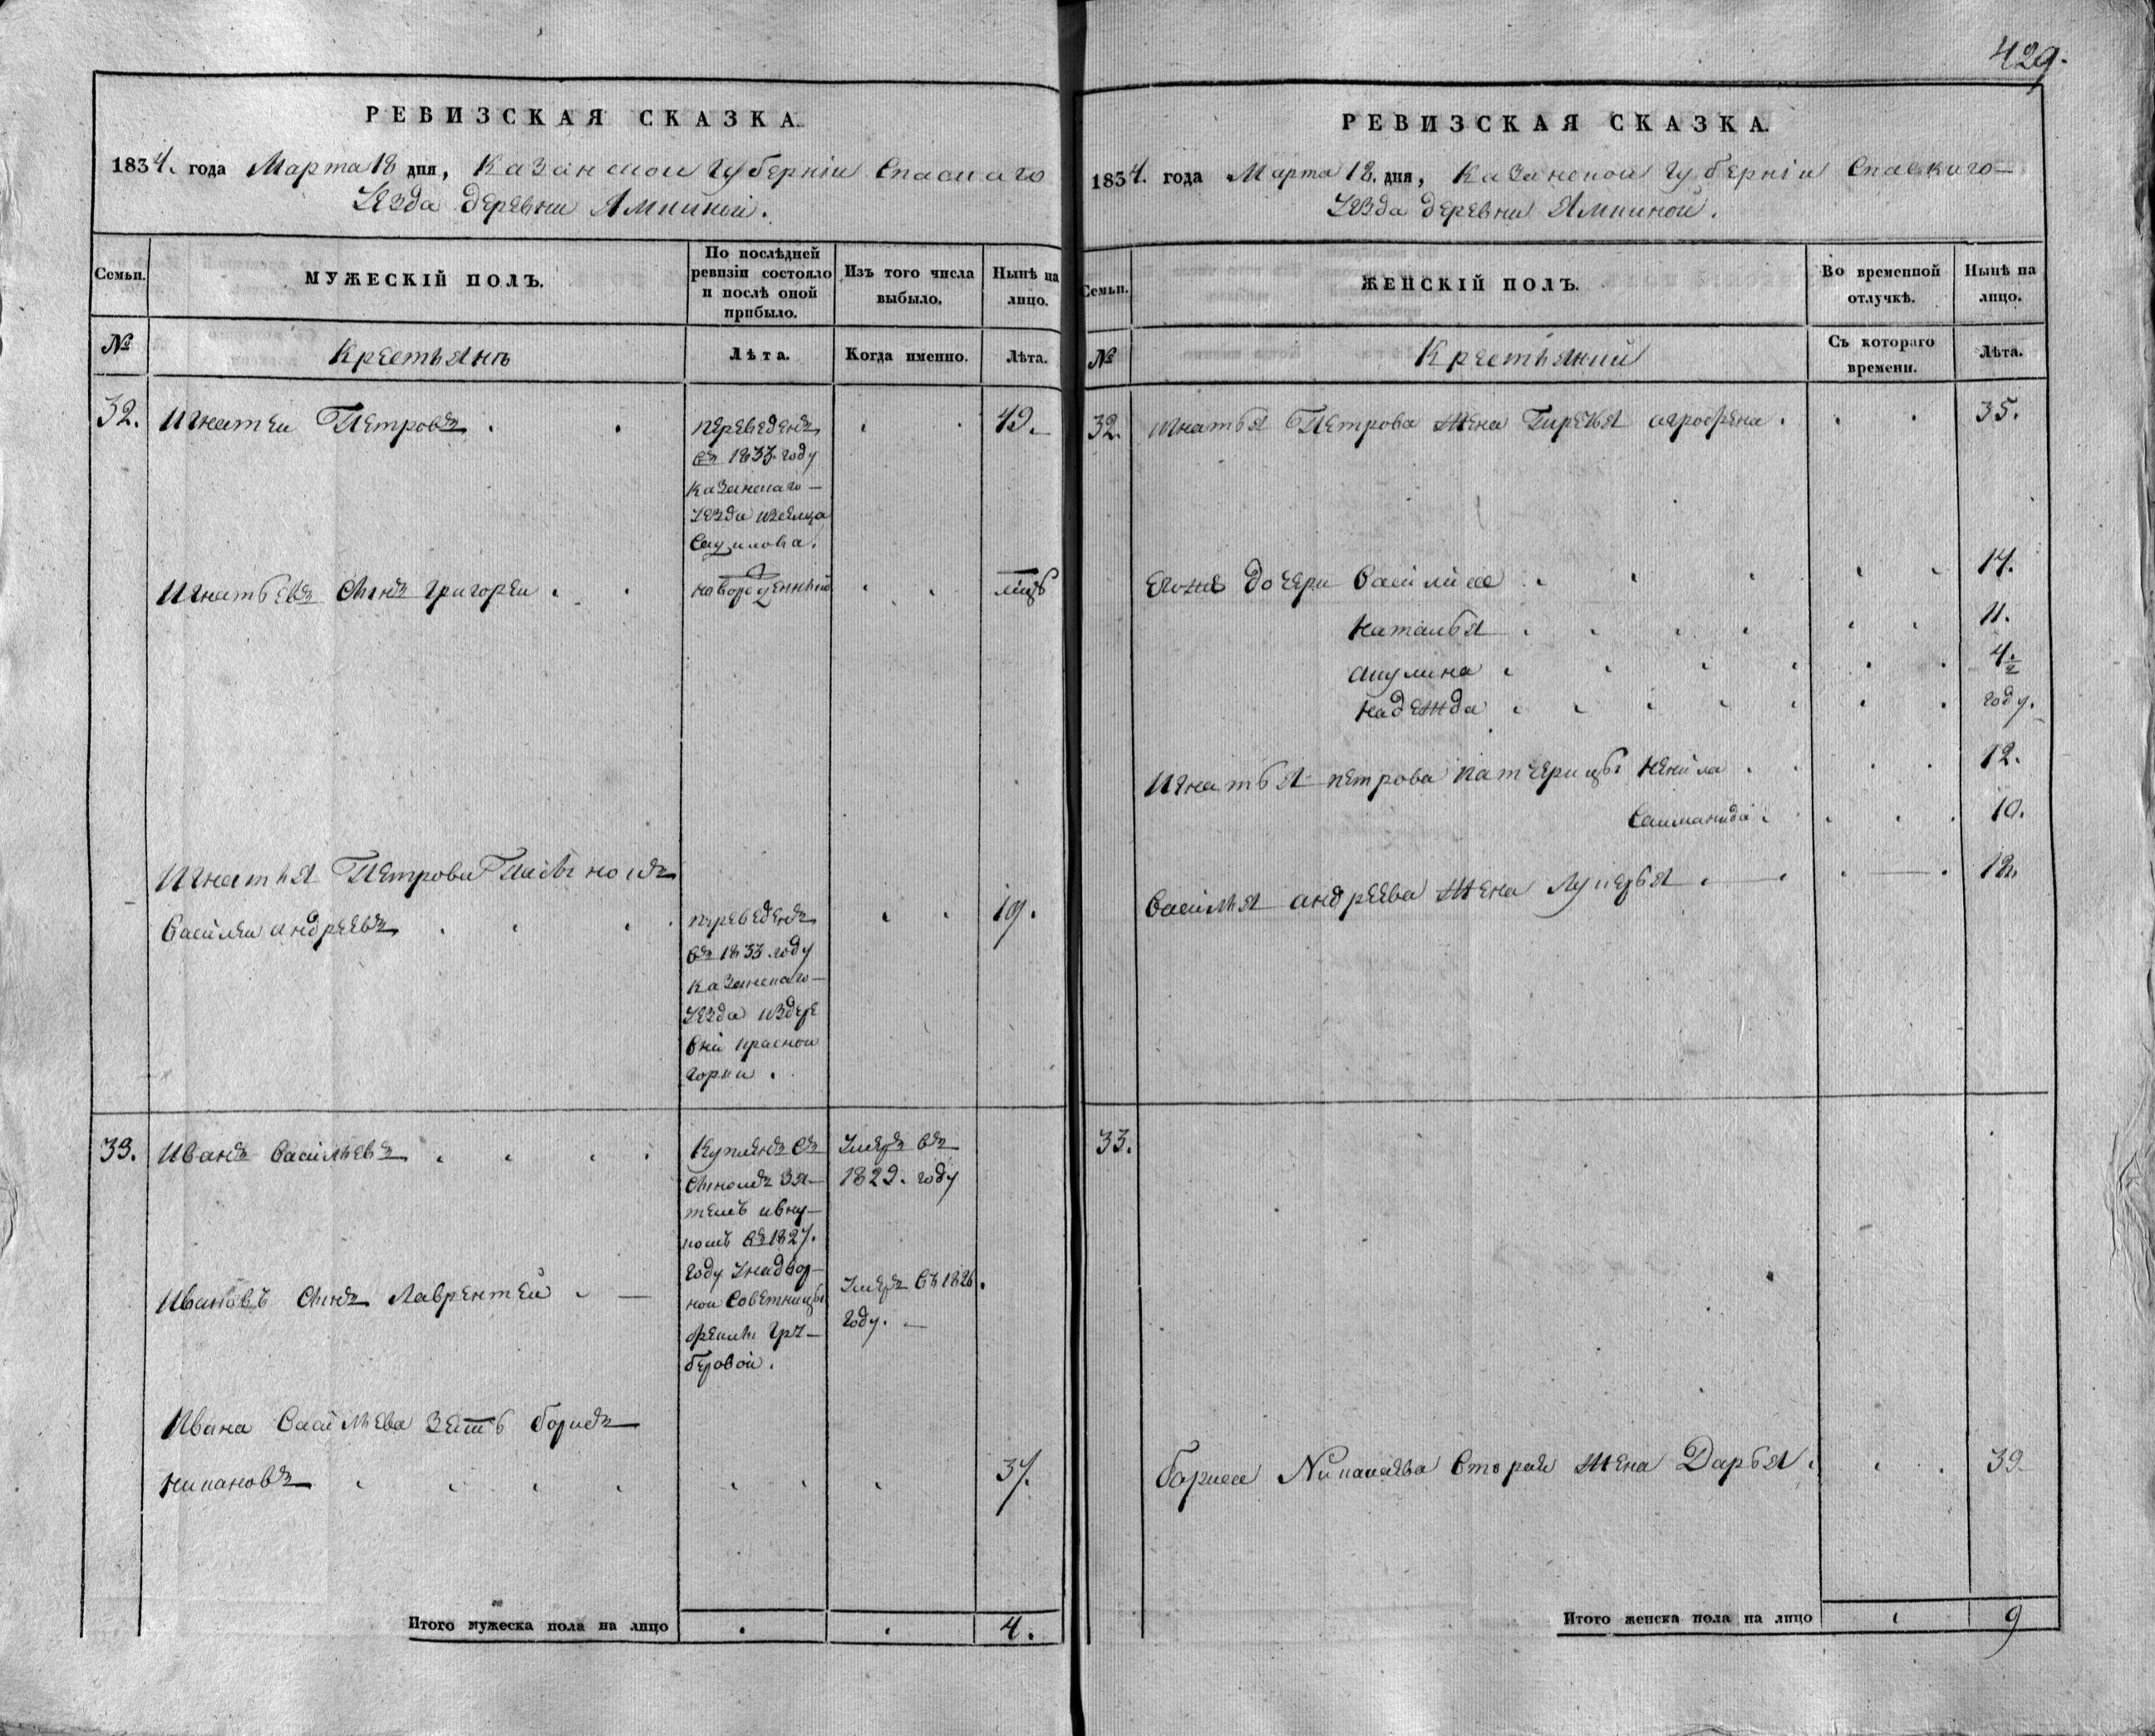 429.
РЕВИЗСКАЯ СКАЗКА.
1834. года Марта 18 дня, Казанской губернiи Спаскаго
уезда деревни Ямкиной.
Семьи.
МУЖЕСКIЙ ПОЛЪ.
По послѣдней ревизiи состояло и послѣ оной прибыло.
Изъ того числа выбыло.
Нынѣ на лицо.
№
Крестьянъ
Лѣта.
Когда именно.
Лѣта.
32. Игнатеи Петровъ 49.
переведенъ
въ 1833. году
казанскаго
уезда изселца
Игнатьевъ сынъ григореи новорожденный мцъ
Игнатья Петрова Пасынокъ
Василеи андреевъ 19.
переведенъ
въ 1833 году
казанскаго
уезда издере
вни красной
горки.
33. Иванъ Васильевъ
Купленъ съ
сыномъ зя
темъ ивну
комъ въ 1827.
году унадвор
ной Советницы
беровой.
умеръ въ
1829. году
Ивановъ сынъ Лаврентеи
умеръ въ 1826.
году.
Ивана Васильева зять борисъ
37.
Итого мужеска пола на лицо 4.
РЕВИЗСКАЯ СКАЗКА.
1834. года Марта 18. дня, казанской губернiи Спаскаго
уезда деревни Ямкиной.
Семьи.
ЖЕНСКIЙ ПОЛЪ.
Во временной отлучкѣ.
Нынѣ на лицо.
№
Съ котораго времени.
Лѣта.
32. игнатья Петрова жена агрофена 35.
дочери Василиса 14.
наталья 11.
акулина 4½
надежда году.
Игнатья петрова патчерицы ненила 12.
10.
Василья андреева жена Лукерья 18.
33.
бориса вторая жена Дарья. 39
Итого женска пола на лицо 9